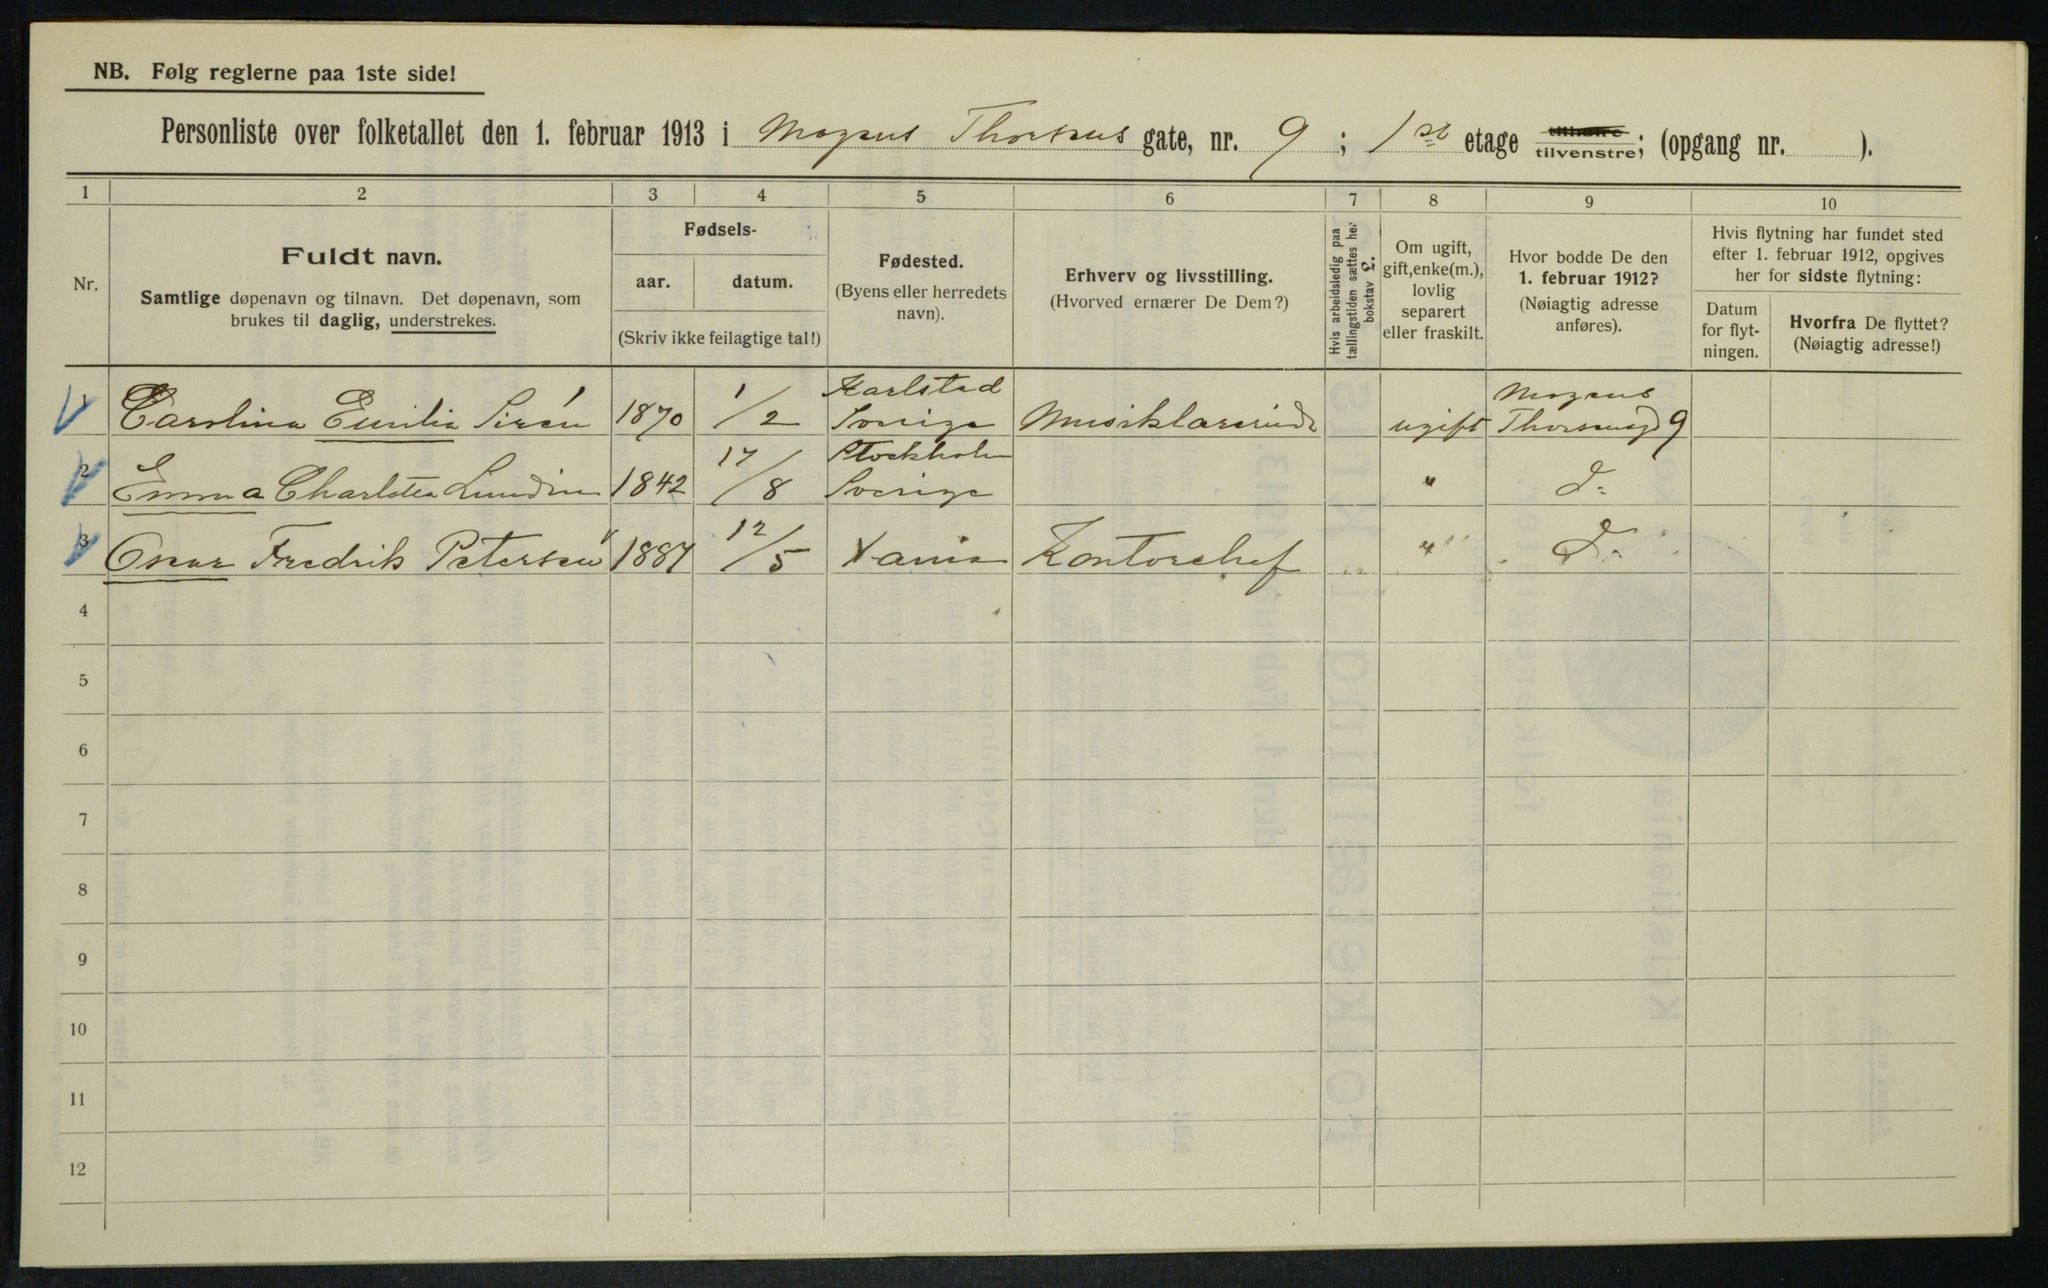 NB. Følg reglerne paa 1ste side!
Personliste over folketallet den 1. februar 1913 i Mogens Thorsens gate, nr. 9 ; 1ste etage tilhøire tilvenstre; (opgang nr. ).
1 2 3 4 5 6 7 8 9 10
Nr.
Fuldt navn.
Samtlige døpenavn og tilnavn. Det døpenavn, som
brukes til daglig, understrekes.
Fødsels-
aar. datum.
(Skriv ikke feilagtige tal!)
Fødested.
(Byens eller herredets
navn).
Erhverv og livsstilling.
(Hvorved ernærer De Dem?)
Hvis arbeidsledig paa
tællingstiden sættes her
bokstav L.
Om ugift,
gift, enke(m.),
lovlig
separert
eller fraskilt.
Hvor bodde De den
1. februar 1912?
(Nøiagtig adresse
anføres).
Hvis flytning har fundet sted
efter 1. februar 1912, opgives
her for sidste flytning:
Datum
for flyt-
ningen.
Hvorfra De flyttet?
(Nøiagtig adresse!)
1 Carolina Emilia Sirén 1870 1/2 Karlstad Sverige Musiklærerinde ugift Mogens Thorsensgd 9
2 Emma Charlotta Lundin 1842 17/8 Stockholm Sverige " do
3 Oscar Fredrik Petersen 1887 12/5 Xania Kontorchef " do
4
5
6
7
8
9
10
11
12